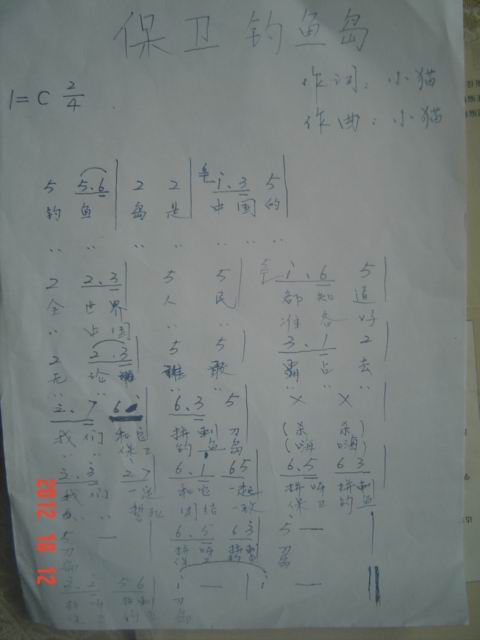 保卫钓鱼岛
作词：小猫
1=C 2/4
作曲：小猫
5 5.6 | 2 2 | i.3 5 |
钓 鱼 岛 是 中国 的
'' '' '' '' '' '' ''
2 2.3 | 5 5 | i.6 5 |
全 世界 人 民 都知 道
'' 中国 '' '' 准备 好
2 2.3 | 5 5 | 3.1 2 |
无 论 谁 敢 霸占 去
2.7 6 | 6.3 5 | × × |
我们 和它 拼刺 刀 (杀 杀)
保卫 钓鱼 岛 (嗨 嗨)
3.3 2 7 | 6.1 65 | 6.5 6 3 |
我们 一定 和它 一起 拼呀 拼刺
团结 一致 保卫 钓鱼
5 — | 6.5 63 | 5 — ||
刀 拼呀 拼刺 刀
岛 保卫 岛
5 6 | i — | i — ||
拼呀 拼刺 刀
2012 10 12